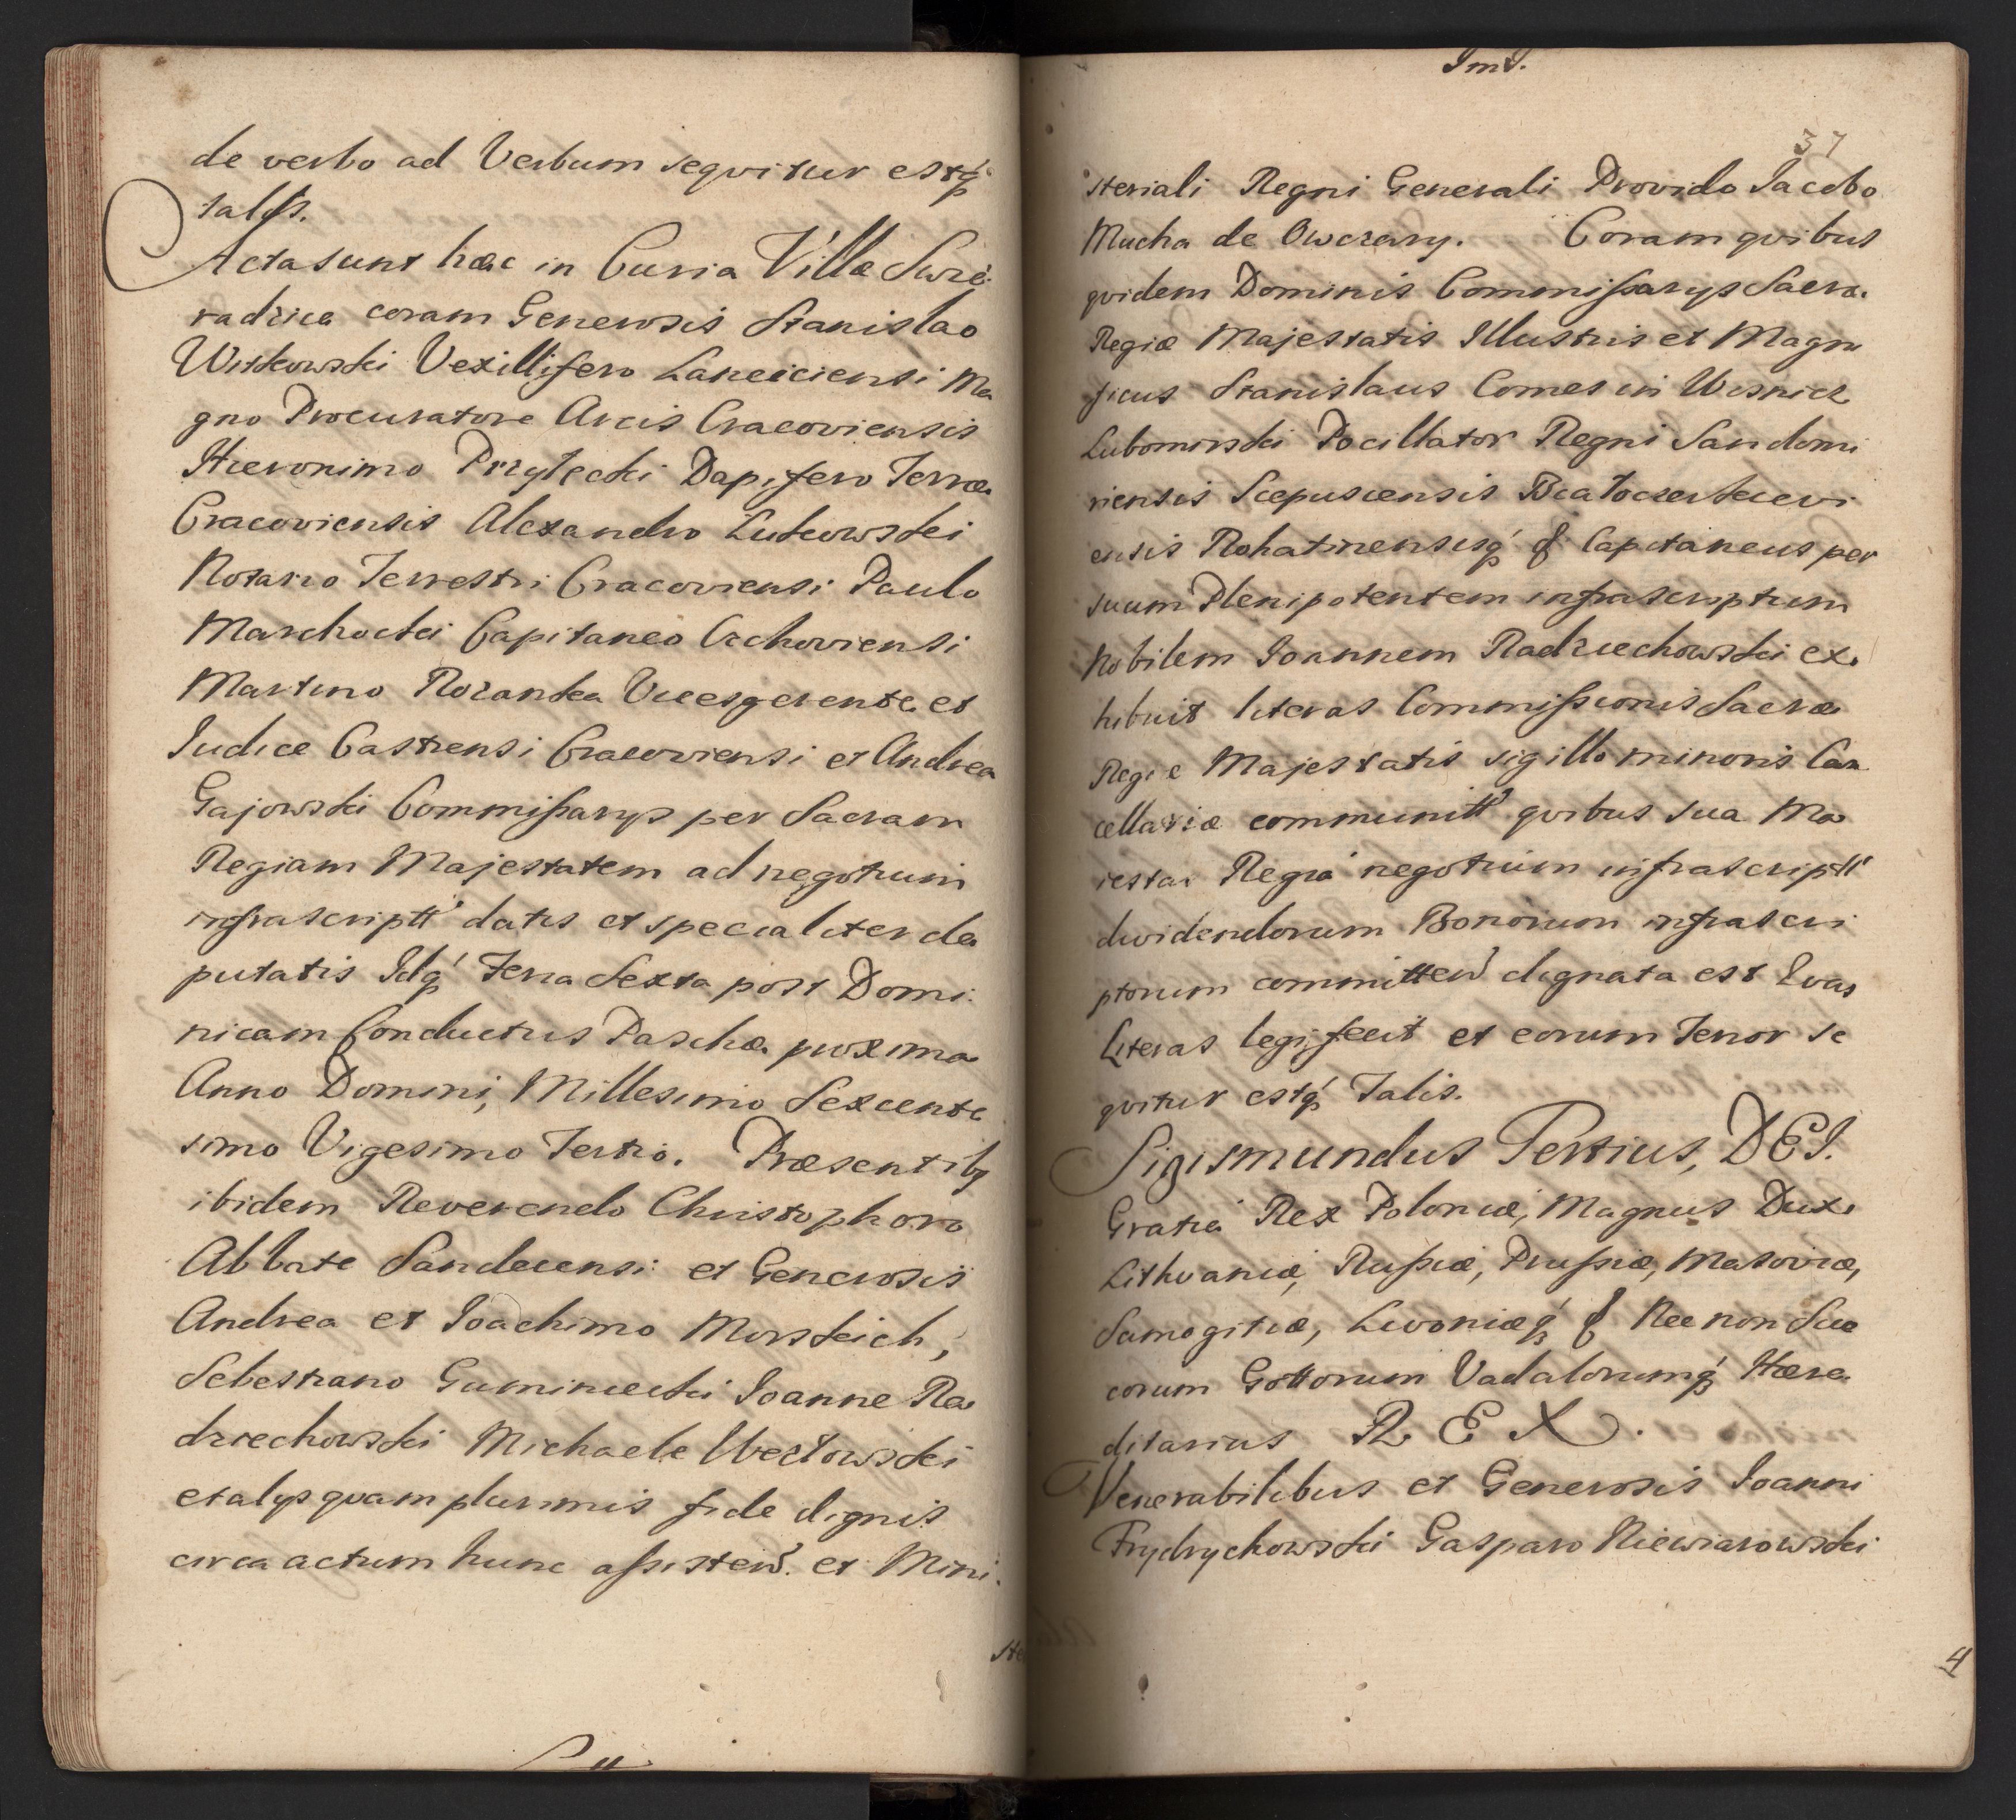 de verbo ad Verbum sequitur estq́
talis.
Acta sunt hæc in Curia Villæ Swie
radzice coram Generosis Stanislao
Witkowski Vexillifero Lanciciensi Ma
gno Procuratore Arcis Cracoviensis
Hieronimo Przyłęcki Dapifero Terræ
Cracoviensis Alexandro Lutkowski
Notario Terrestri Cracoviensi Paulo
Marchocki Capitaneo Czchoviensi
Martino Rozanka Vicesgerente et
Iudice Castrensi Cracoviensi et Andrea
Gajowski Commissarys per Sacram
Regiam Majestatem ad negotium
infrascriptt' datis et specialiter de
putatis Idq́ Feria Sexta post Domi
nicam Conductus Paschæ proxima
Anno Domini, Millesimo Sexcente
simo Vigesimo Tertio. Præsentibq
ibidem Reverendo Christophoro
Abbate Sandecensi et Generosis
Andrea et Joachimo Morsteich,
Sebestiano Guminiecki Joanne Ra
dziechowski Michaele Węcłowski
et alys quam plurimis fide dignis
circa actum hunc assisten̄. et Mini.
ste
Imt.
37
steriali Regni Generali Provido Iacobo
Mucha de Owczary. Coram quibus
quidem Dominis Commissarys Sacræ
Regiæ Majestatis Illustris et Magni
ficus Stanislaus Comes in Wisnicz
Lubomirski Pocillator Regni Sandomi
riensis Scepusiensis Białocerkievi
ensis Rohatinensisq́ & Capitaneus per
suum Plenipotentem infrascriptum
Nobilem Joannem Radziechowski ex
hibuit literas Commissionis Sacræ
Regiæ Majestatis sigillo minoris Can
cellariæ communitt' quibus sua Ma
iestas Regia negotium infrascriptt'
dividendorum Bonorum infrascri
ptorum committen̄ dignata est Quas
Literas legi fecit et eorum Tenor se
quitur estq́ Talis.
Sigismundus Tertius, DEI.
Gratia Rex Poloniæ, Magnus Dux.
Lithvaniæ, Russiæ, Prussiæ, Masoviæ,
Samogitiæ, Livoniæq́ & Nec non Sue
corum Gottorum Vadalorumq́ Hære
ditarius REX.
Venerabilibus et Generosis Joanni
Frydrychowski Gasparo Niewiarowski
4